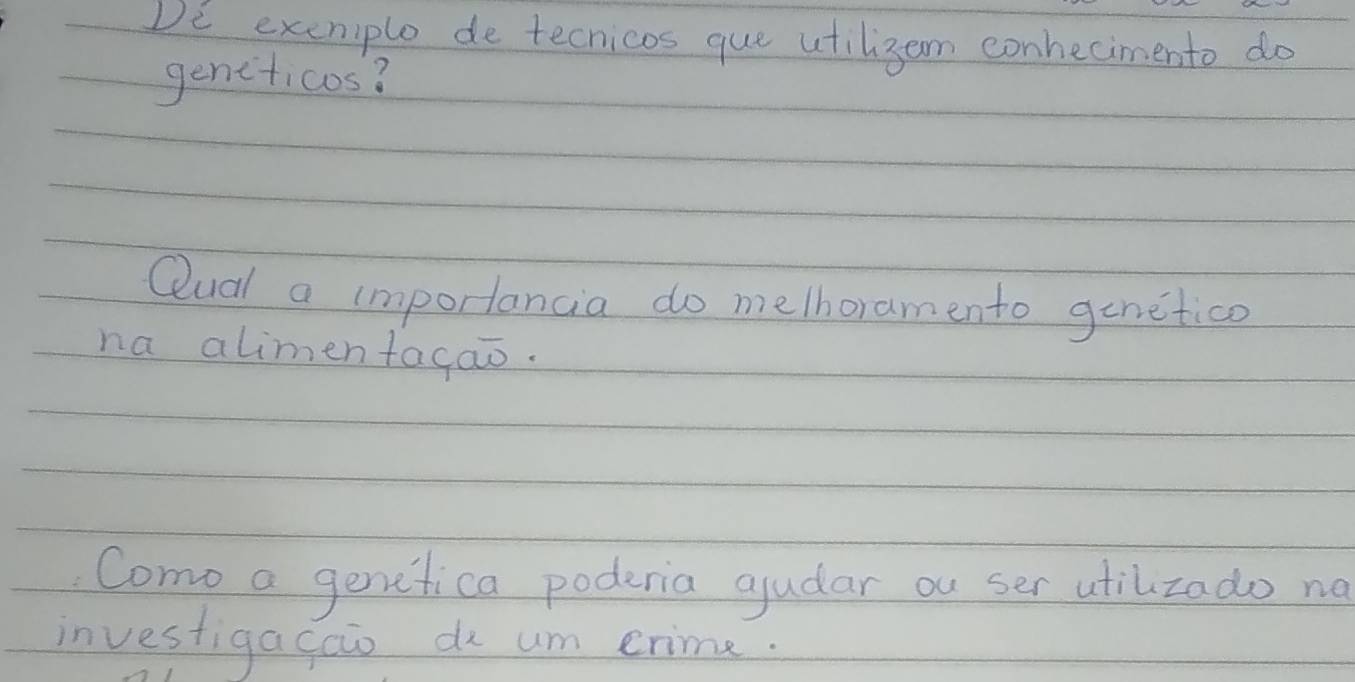 Dê exemplo de tecnicos que utilizam conhecimento do
genéticos?
Qual a importancia do melhoramento genético
na alimentação.
Como a genética poderia ajudar ou ser utilizado na
investigação de um crime.